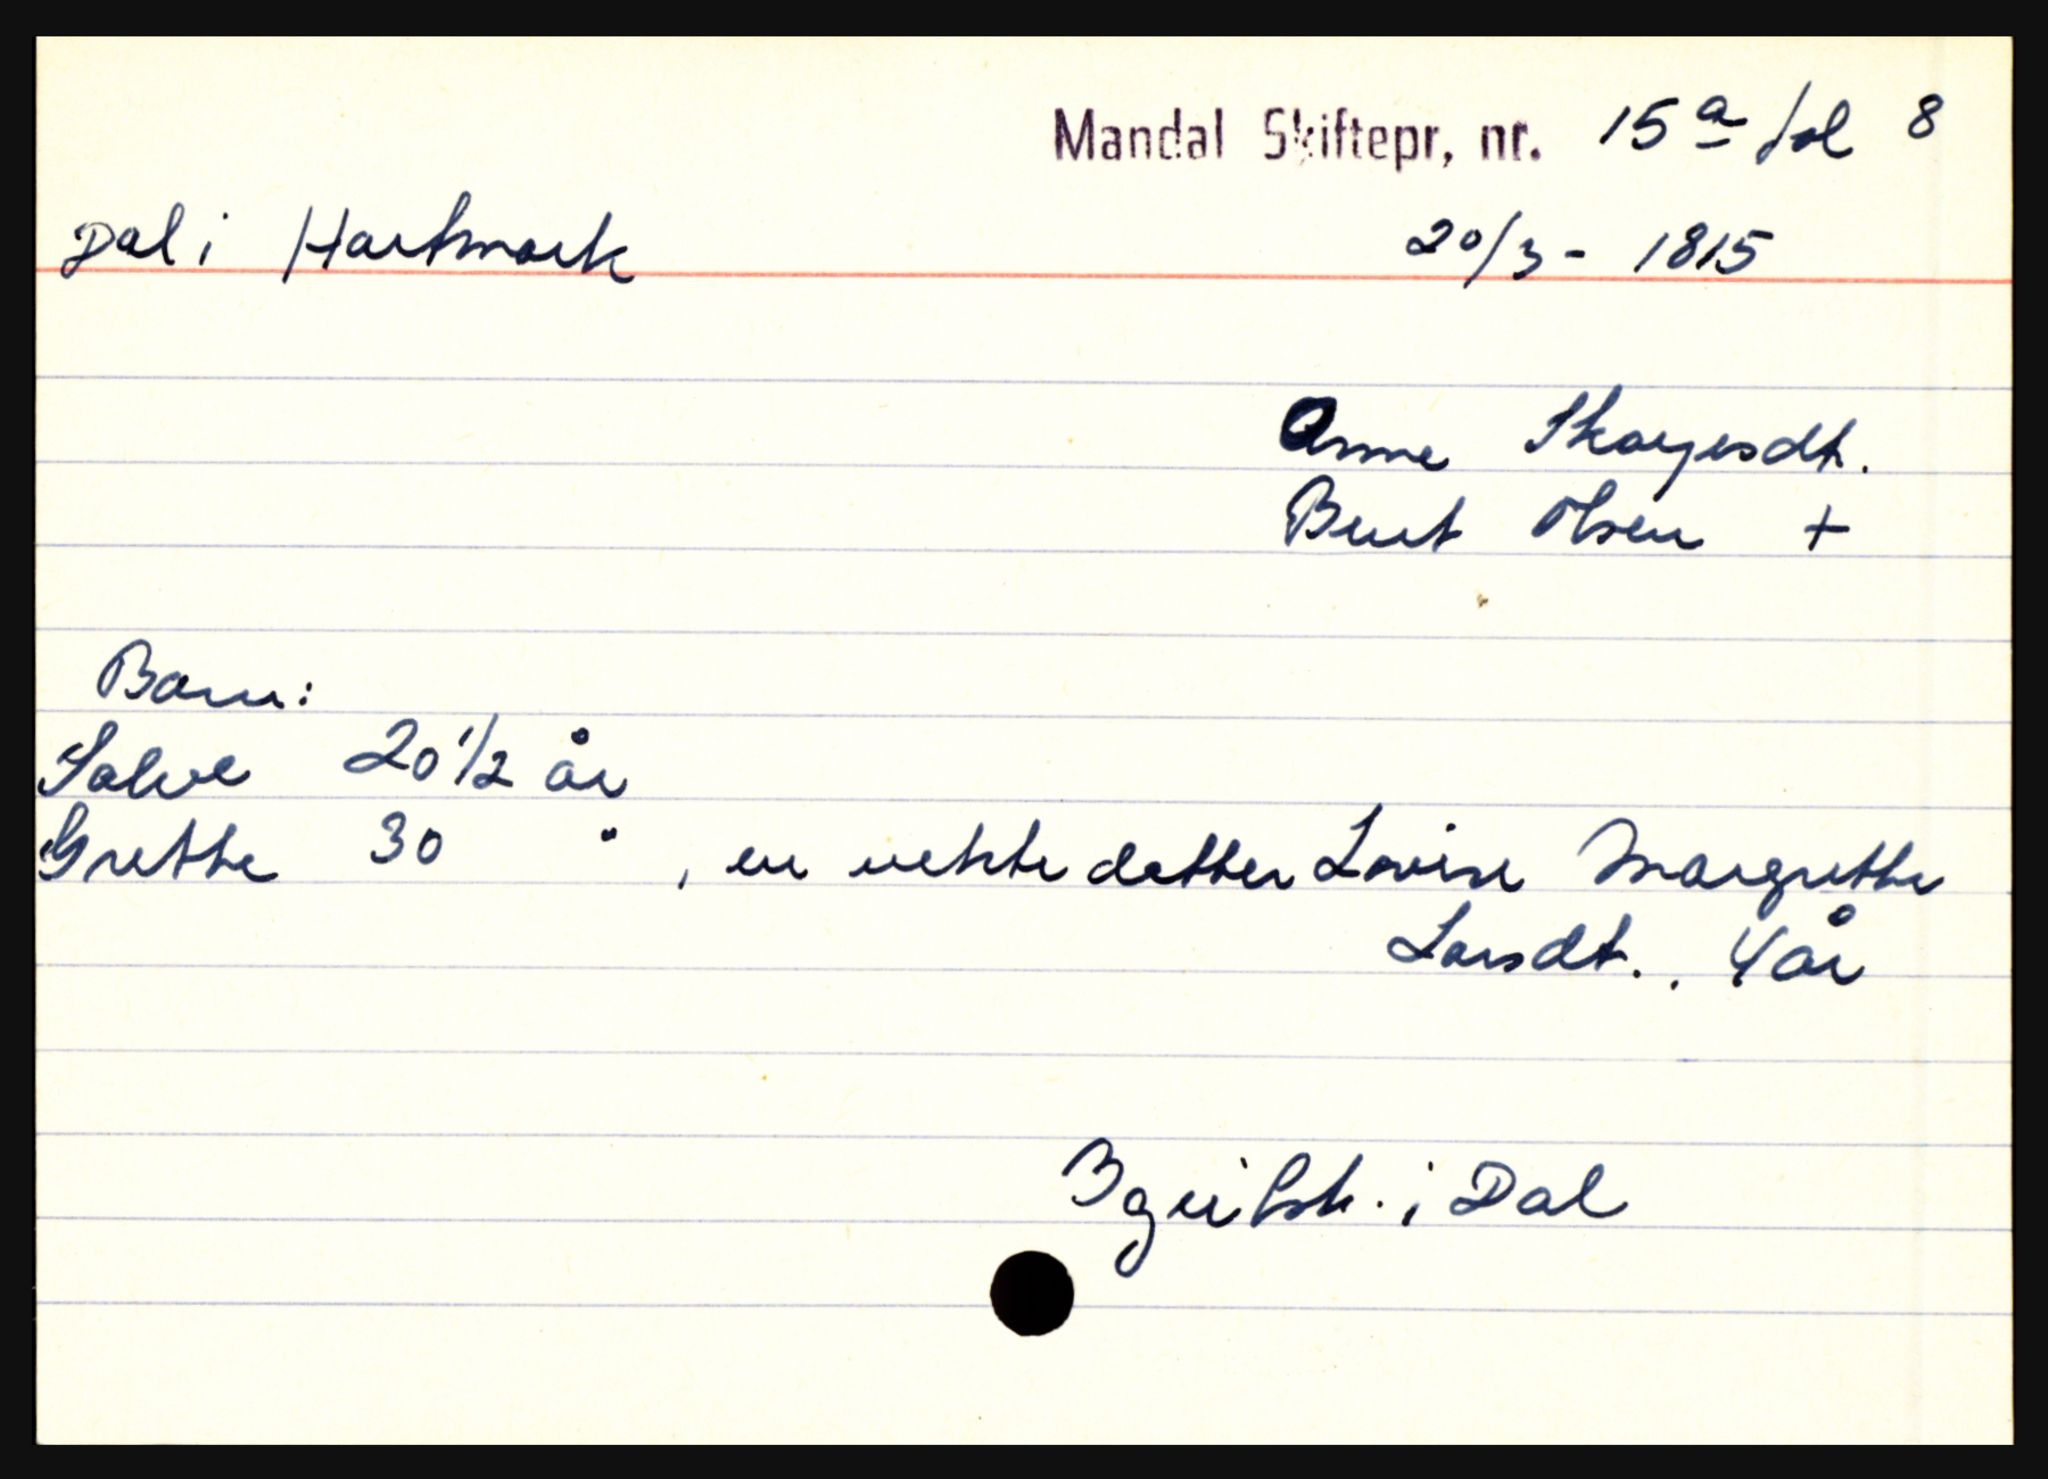 Mandal Skiftepr, nr. 15 a fol 8
Dal i Hartmark 20/3 - 1815
Anne Skoyesdt.
Bent Olsen +
Barn:
Salve 20 1/2 år
Grethe 30 " , en uekte datter Lovise Margrethe
Larsdt. . 4 år
i Dal